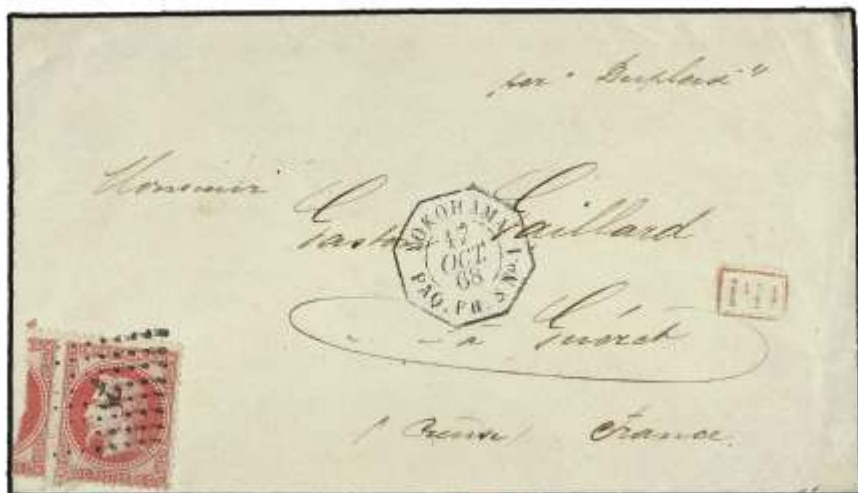 per " Dupleix "
Monsieur
Gaston Gaillard
YOKOHAMA
17
OCT.
68
PAQ. FR.
à Guéret
( Creuse ) France.